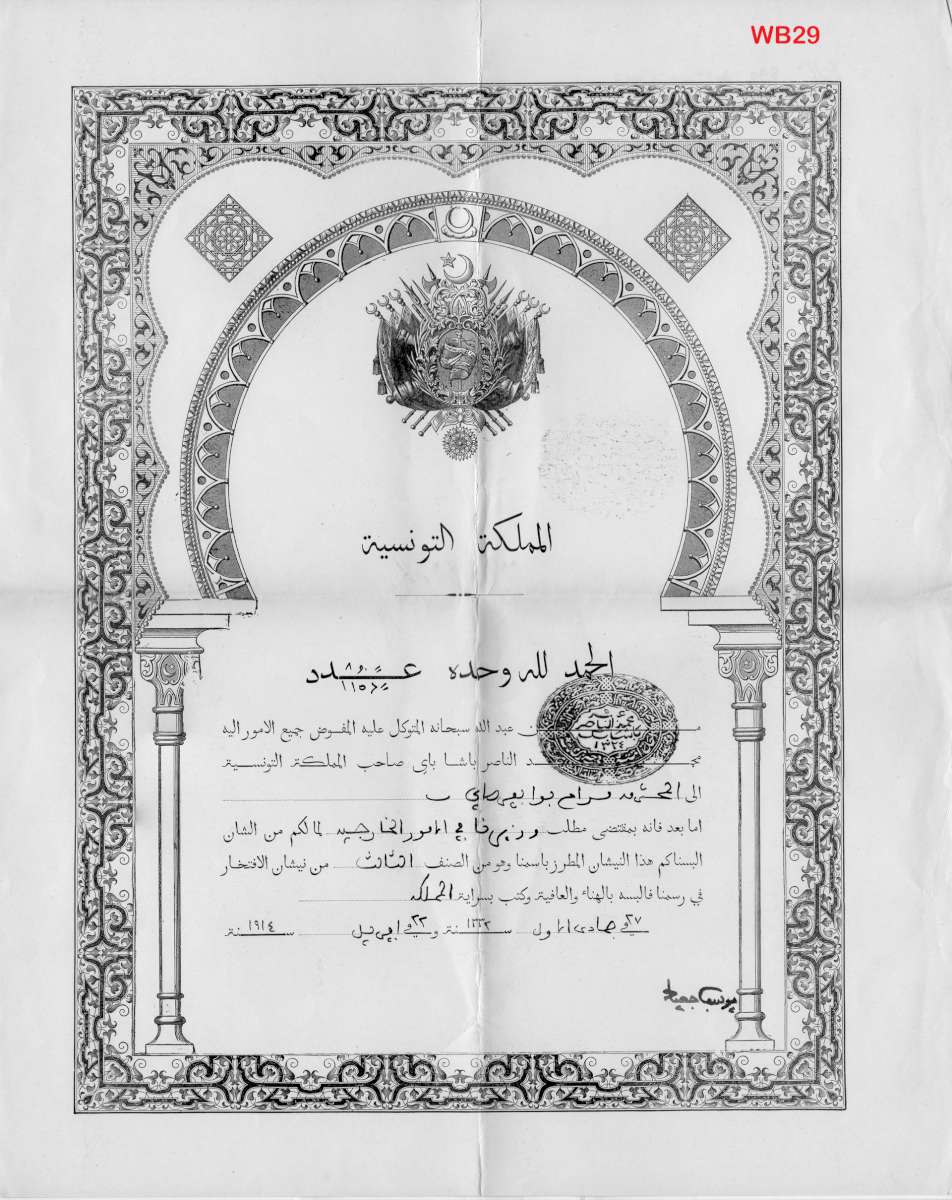 WB29
المملكة التونسية
الحمد لله وحده عدد
محمد الناصر
باشا باي
١٣٢٤
من عبد الله سبحانه المتوكل عليه المفوض جميع الامور اليه
محمد الناصر باشا باي صاحب المملكة التونسية
الى المحترم
اما بعد فانه بمقتضى مطلب وزيرنا في الامور الخارجية لمالكم من الشان
البسناكم هذا النيشان المطرز باسمنا وهو من الصنف الثالث من نيشان الافتخار
في رسمنا فالبسه بالهناء والعافية وكتب بسراية المملكة
في ٢٧ جمادى الاول سنة ١٣٣٢ وفي ٢٢ ابريل سنة ١٩١٤